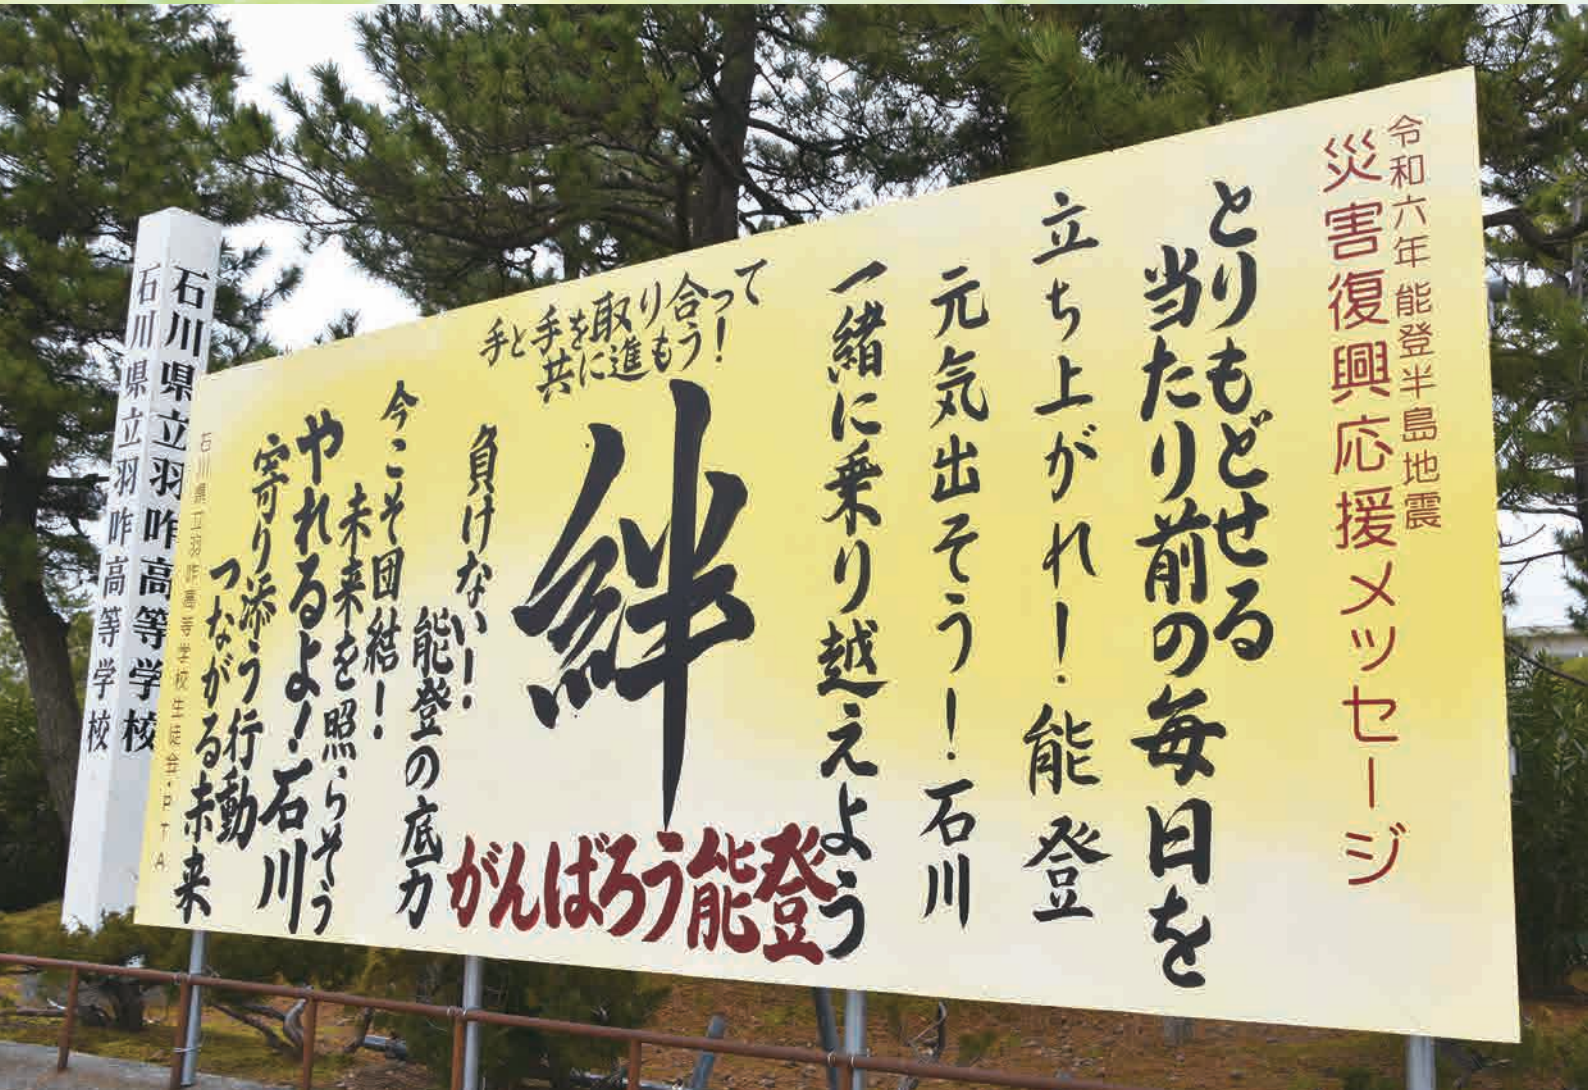 令和六年能登半島地震
災害復興応援メッセージ
とりもどせる
当たり前の毎日を
立ち上がれ！能登
元気出そう！石川
一緒に乗り越えよう
手と手を取り合って
共に進もう！
絆
がんばろう能登
負けない！
能登の底力
今こそ団結！
未来を照らそう
やれるよ！石川
寄り添う行動
つながる未来
石川県立羽咋高等学校生徒会・PTA
石川県立羽咋高等学校
石川県立羽咋高等学校